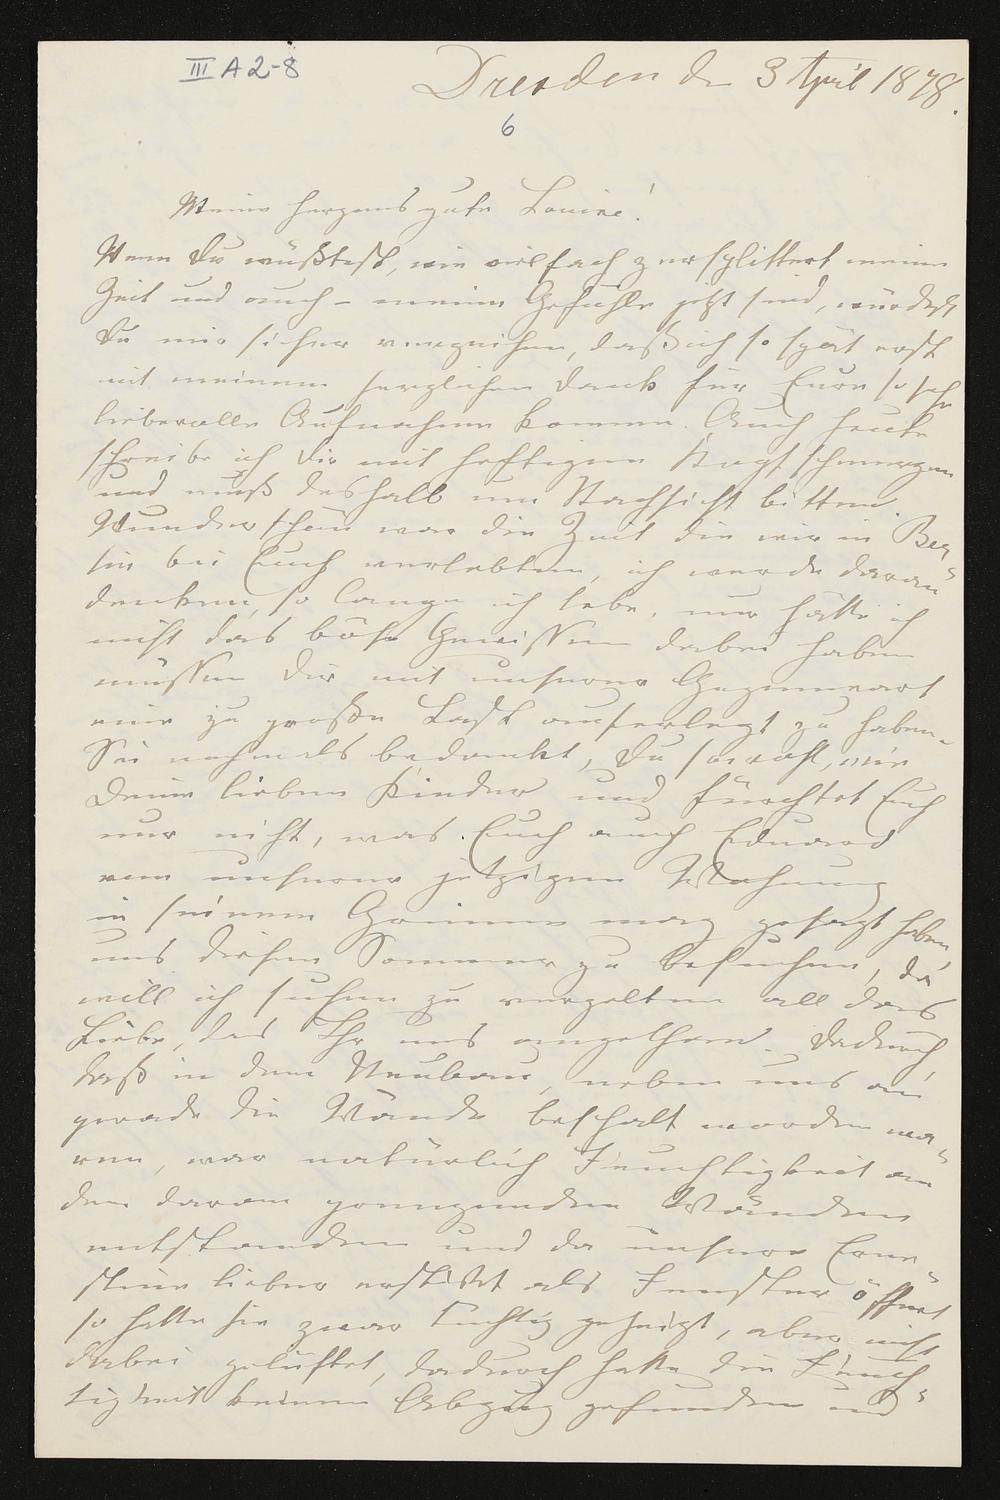 III A 2-8
Dresden d. 3 April 1878.
6
Meine herzensgute Louise!
Wenn Du wüßtest, wie vielfach zersplittert meine
Zeit und auch – meine Gefühle jetzt sind, würdest
Du mir sicher verzeihen, daß ich so spät erst
mit meinem herzlichen Dank für Eure so sehr
liebevolle Aufnahme komme. Auch heute
schreibe ich Dir mit heftigen Kopfschmerzen
und muß deshalb um Nachsicht bitten.
Wunderschön war die Zeit die wir in Ber-
lin bei Euch verlebten, ich werde daran
denken, so lange ich lebe, nur hätte ich
nicht das böse Gewissen dabei haben
müssen Dir mit unserer Gegenwart
eine zu große Last auferlegt zu haben.
Sei nochmals bedankt, Du sowohl, wie
Deine lieben Kinder und fürchtet Euch
nur nicht, was Euch auch Eduard
von unserer jetzigen Wohnung
in seinem Grimme mag gesagt haben
uns diesen Sommer zu besuchen, da
will ich suchen zu vergelten all das
Liebe, das Ihr uns angethan. Dadurch,
daß in dem Neubau, neben uns an
gerade die Wände beschalt worden wa-
ren, war natürlich Feuchtigkeit an
den daran grenzenden Wänden
entstanden und da unsere Erne-
stine lieber erstickt als Fenster öffnet
so hatte sie zwar tüchtig geheizt, aber nicht
dabei gelüftet, dadurch hatte die Feuch-
tigkeit keinen Abzug gefunden und